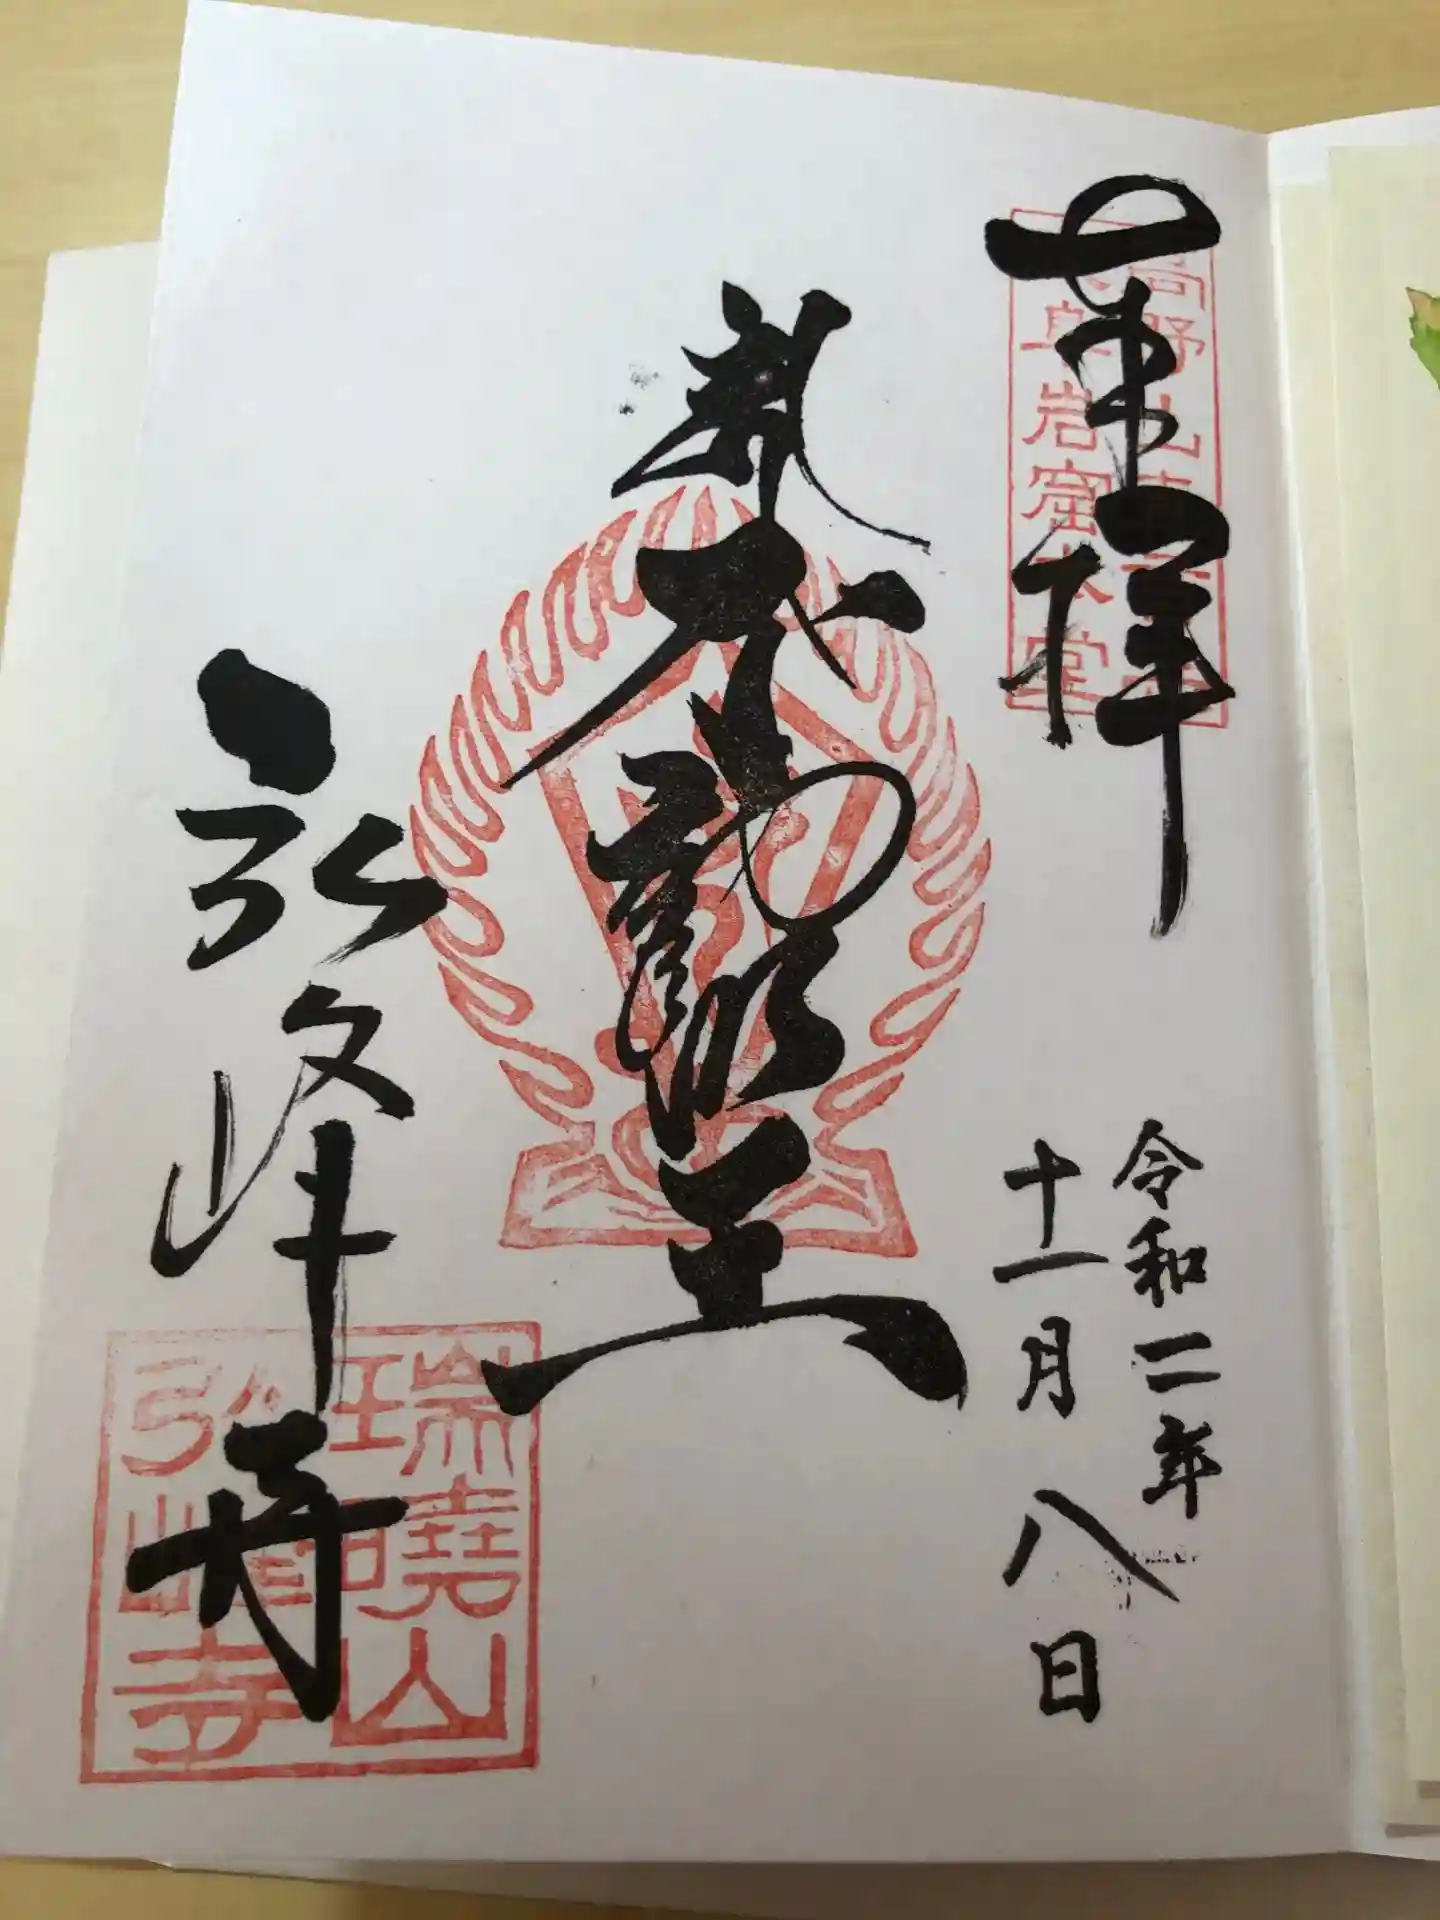 奉拝
高野山真言宗
阜岩窟本堂
令和二年
十一月八日
王
弘峰寺
瑞曉山
弘峰寺